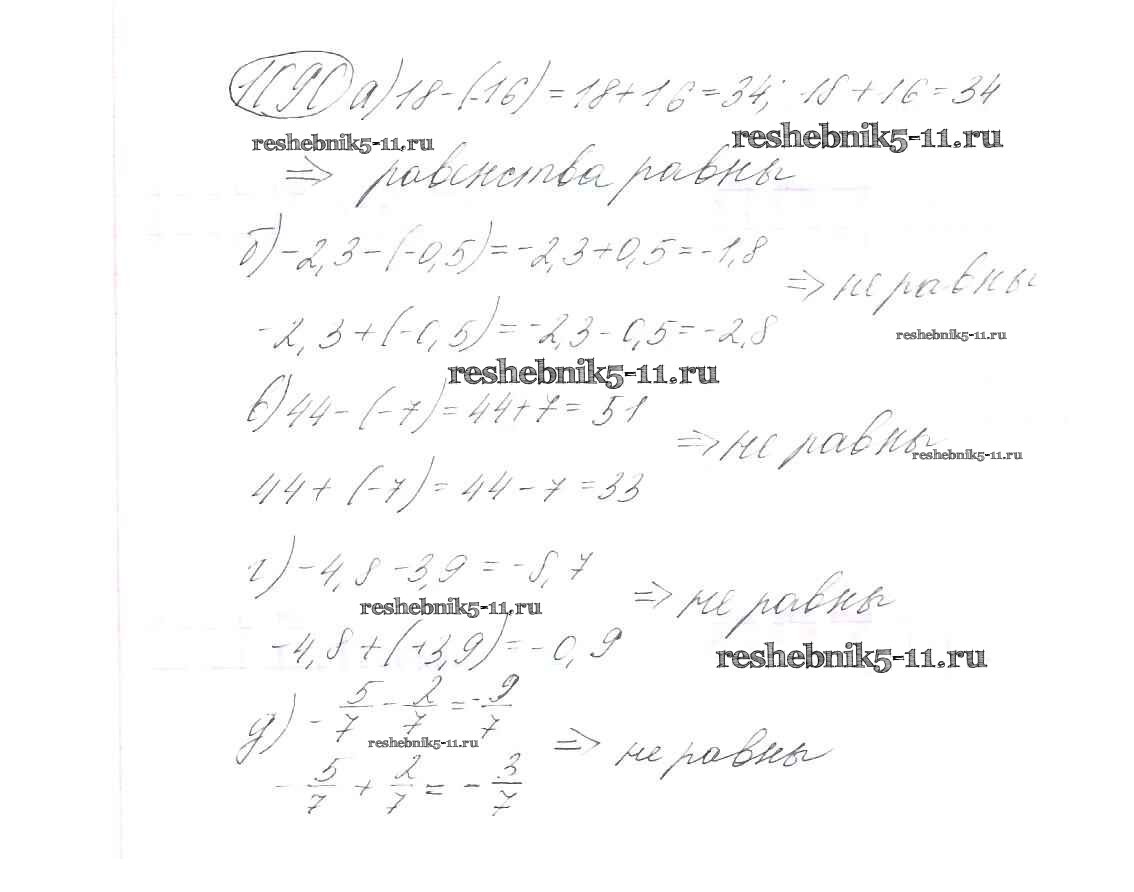 1090 а) 18-(-16)=18+16=34; 18+16=34
reshebnik5-11.ru reshebnik5-11.ru
=> равенства равны
б) -2,3-(-0,5)=-2,3+0,5=-1,8
=> не равны
-2,3+(-0,5)=-2,3-0,5=-2,8
reshebnik5-11.ru
reshebnik5-11.ru
в) 44-(-7)=44+7=51
=> не равны
reshebnik5-11.ru
44+(-7)=44-7=33
г) -4,8-3,9=-8,7
=> не равны
reshebnik5-11.ru
-4,8+(+3,9)=-0,9
reshebnik5-11.ru
д) -5/7-2/7=-9/7
reshebnik5-11.ru
=> не равны
-5/7+2/7=-3/7